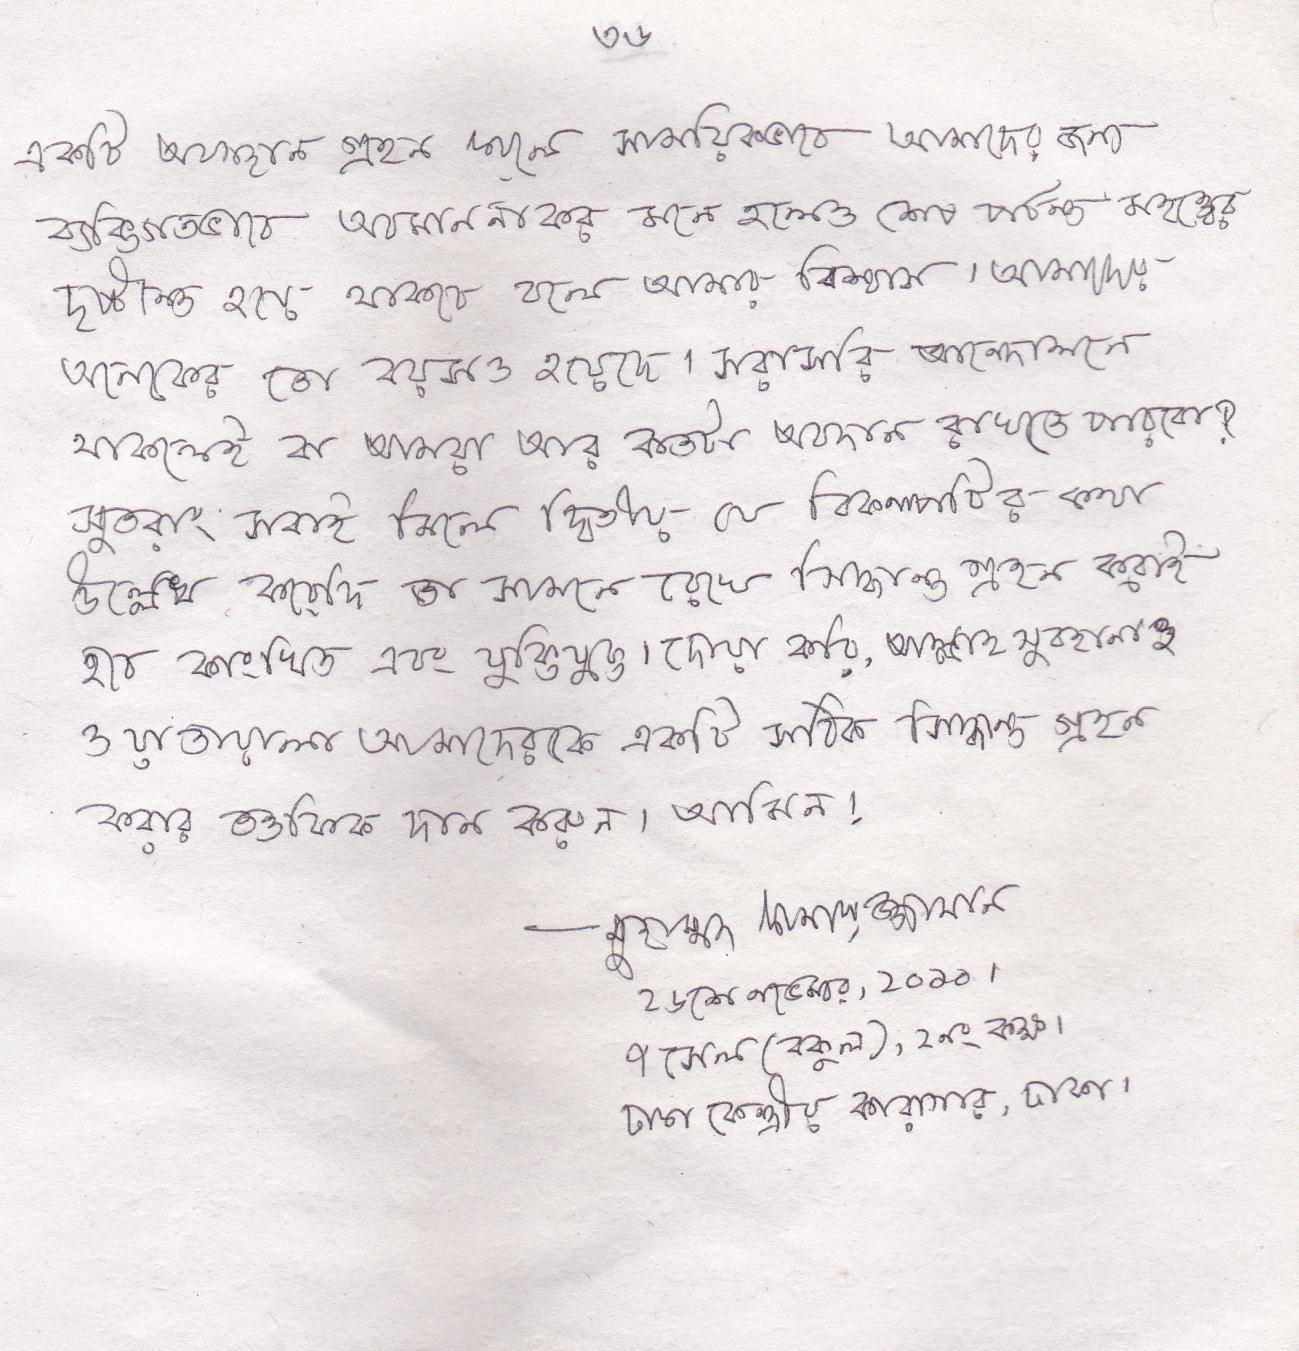 ৩৬
একটি অবস্থান গ্রহন করলে সাময়িকভাবে আমাদের জন্য
ব্যক্তিগতভাবে অবমাননাকর মনে হলেও শেষ পর্যন্ত মহত্ত্বের
দৃষ্টান্ত হয়ে থাকবে বলে আমার বিশ্বাস। আমাদের
অনেকের তো বয়সও হয়েছে। সরাসরি আন্দোলনে
থাকলেই বা আমরা আর কতটা অবদান রাখতে পারবো?
সুতরাং সবাই মিলে দ্বিতীয় যে বিকল্পটির কথা
উল্লেখ করেছি তা সামনে রেখে সিদ্ধান্ত গ্রহন করাই
হবে কাংখিত এবং যুক্তিযুক্ত। দোয়া করি, আল্লাহ সুবহানাহু
ওয়া তায়ালা আমাদেরকে একটি সঠিক সিদ্ধান্ত গ্রহন
করার তওফিক দান করুন। আমিন!
— মুহাম্মদ কামারুজ্জামান
২৬শে নভেম্বর, ২০১০।
৭ সেল (বকুল), ২নং কক্ষ।
ঢাকা কেন্দ্রীয় কারাগার, ঢাকা।